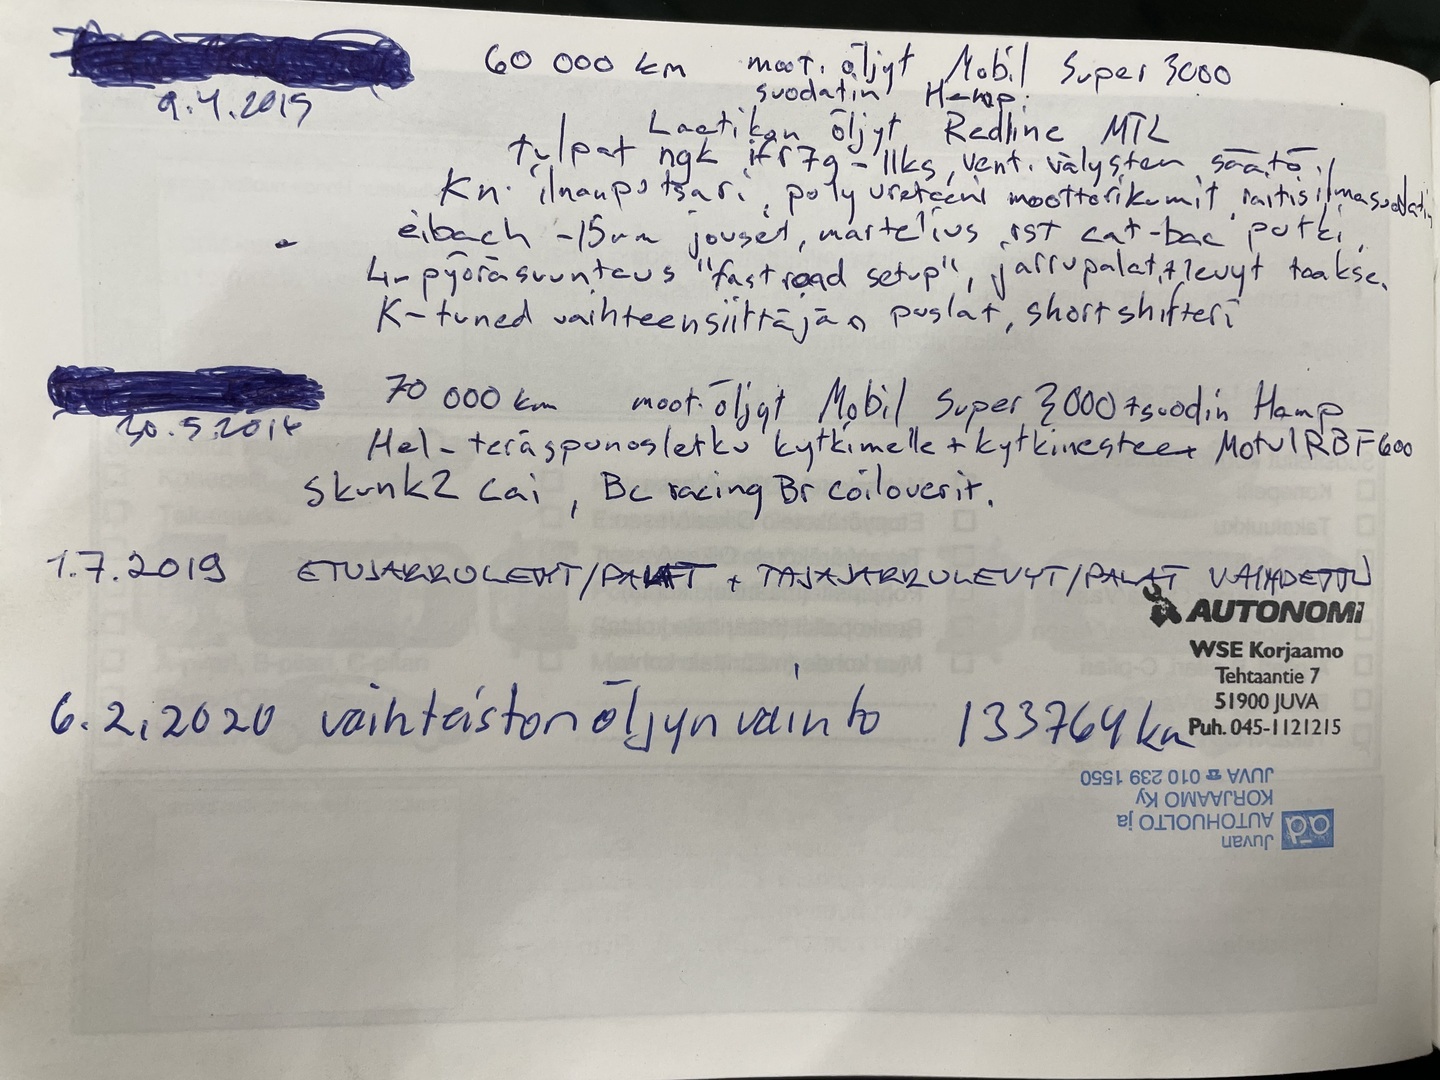 60 000 km moot. öljyt Mobil Super 3000
9.4.2015 suodatin Hamp.
Laatikon öljyt Redline MTL
tulpat ngk ifr7g-11ks, vent. välysten säätö,
Kn. ilmanputsari, polyureteeni moottorikumit raitisilmasuodatin
eibach -15mm jouset, martelius rst cat-bac putki,
4-pyöräsuuntaus "fast road setup", jarrupalat+levyt taakse.
K-tuned vaihteensiirtäjän puslat, short shifteri
70 000 km moot. öljyt Mobil Super 3000 + suodin Hamp
30.5.2016
Hel-teräspunosletku kytkimelle + kytkinneste Motul RBF600
Skunk2 cai, Bc racing Br coiloverit.
1.7.2019 ETUJARRULEVYT/PALAT + TAKAJARRULEVYT/PALAT VAIHDETTU
AUTONOMi
WSE Korjaamo
Tehtaantie 7
51900 JUVA
Puh. 045-1121215
6.2.2020 vaihteiston öljyn vaihto 133764 km
ad Juvan
AUTOHUOLTO ja
KORJAAMO Ky
JUVA ☎ 010 239 1550